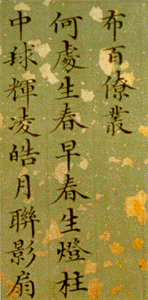 布百僚叢
何處生春早春生燈柱
中球輝凌皓月聯影扇